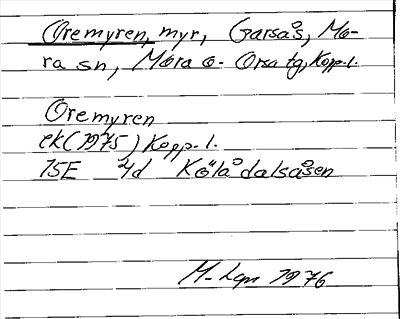 Oremyren, myr, Garsås, Mo-
ra sn, Mora o. Orsa tg, Kopp.l.
Oremyren
ek (1975) Kopp. l.
15E 4d Kölådalsåsen
M. Lgn 1976